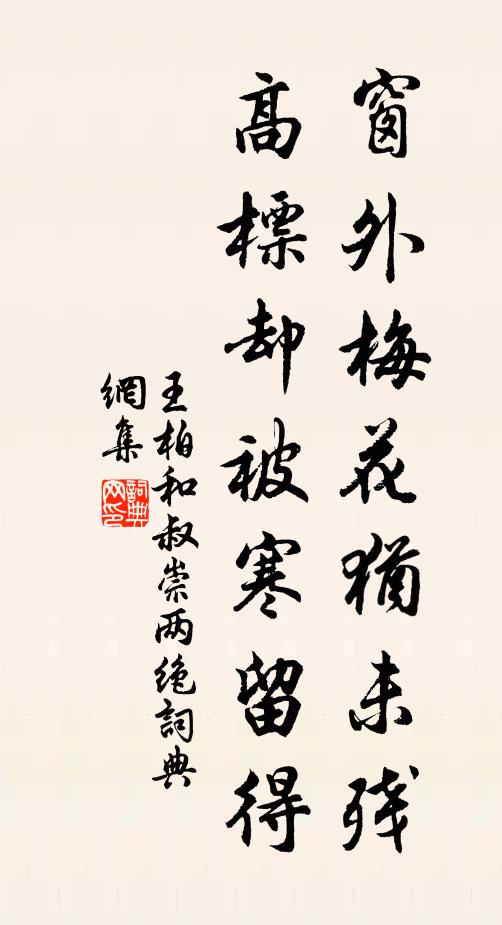 窗外梅花猶未残
高標却被寒留得
王柏和叔崇两绝詞典
網集
詞典
网印